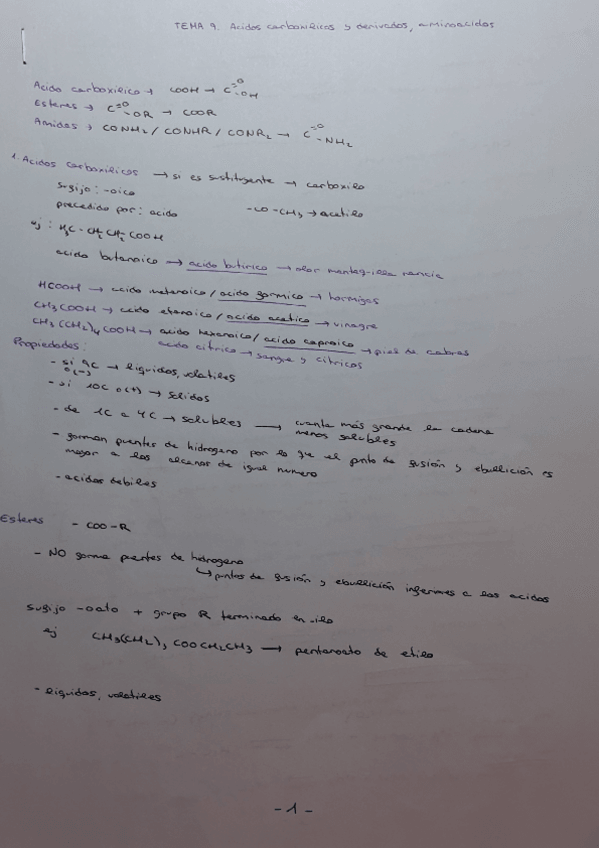 TEMA 9. Acidos carboxilicos y derivados, aminoacidos
Acido carboxilico → COOH → C=O -OH
Esteres → C=O -OR → COOR
Amidas → CONH2 / CONHR / CONR2 → C=O -NH2
1. Acidos carboxilicos → si es sustituyente → carboxilo
sufijo: -oico
precedido por: acido -CO-CH3 → acetilo
ej: H3C-CH2CH2COOH
acido butanoico → acido butirico → olor mantequilla rancia
HCOOH → acido metanoico / acido formico → hormigas
CH3COOH → acido etanoico / acido acetico → vinagre
CH3(CH2)4COOH → acido hexanoico / acido caproico → piel de cabras
acido citrico → sangre y citricos
Propiedades:
- si 9C o (-) → liquidos, volatiles
- si 10C o (+) → solidos
- de 1C a 4C → solubles → cuanta más grande la cadena menos solubles
- forman puentes de hidrogeno por lo que el punto de fusión y ebullición es
mayor a los alcanos de igual numero
- acidos debiles
Esteres - COO-R
- NO forma puentes de hidrogeno
↳ puntos de fusión y ebullición inferiores a los acidos
sufijo -oato + grupo R terminado en -ilo
ej CH3(CH2)3COOCH2CH3 → pentanoato de etilo
- liquidos, volatiles
- 1 -